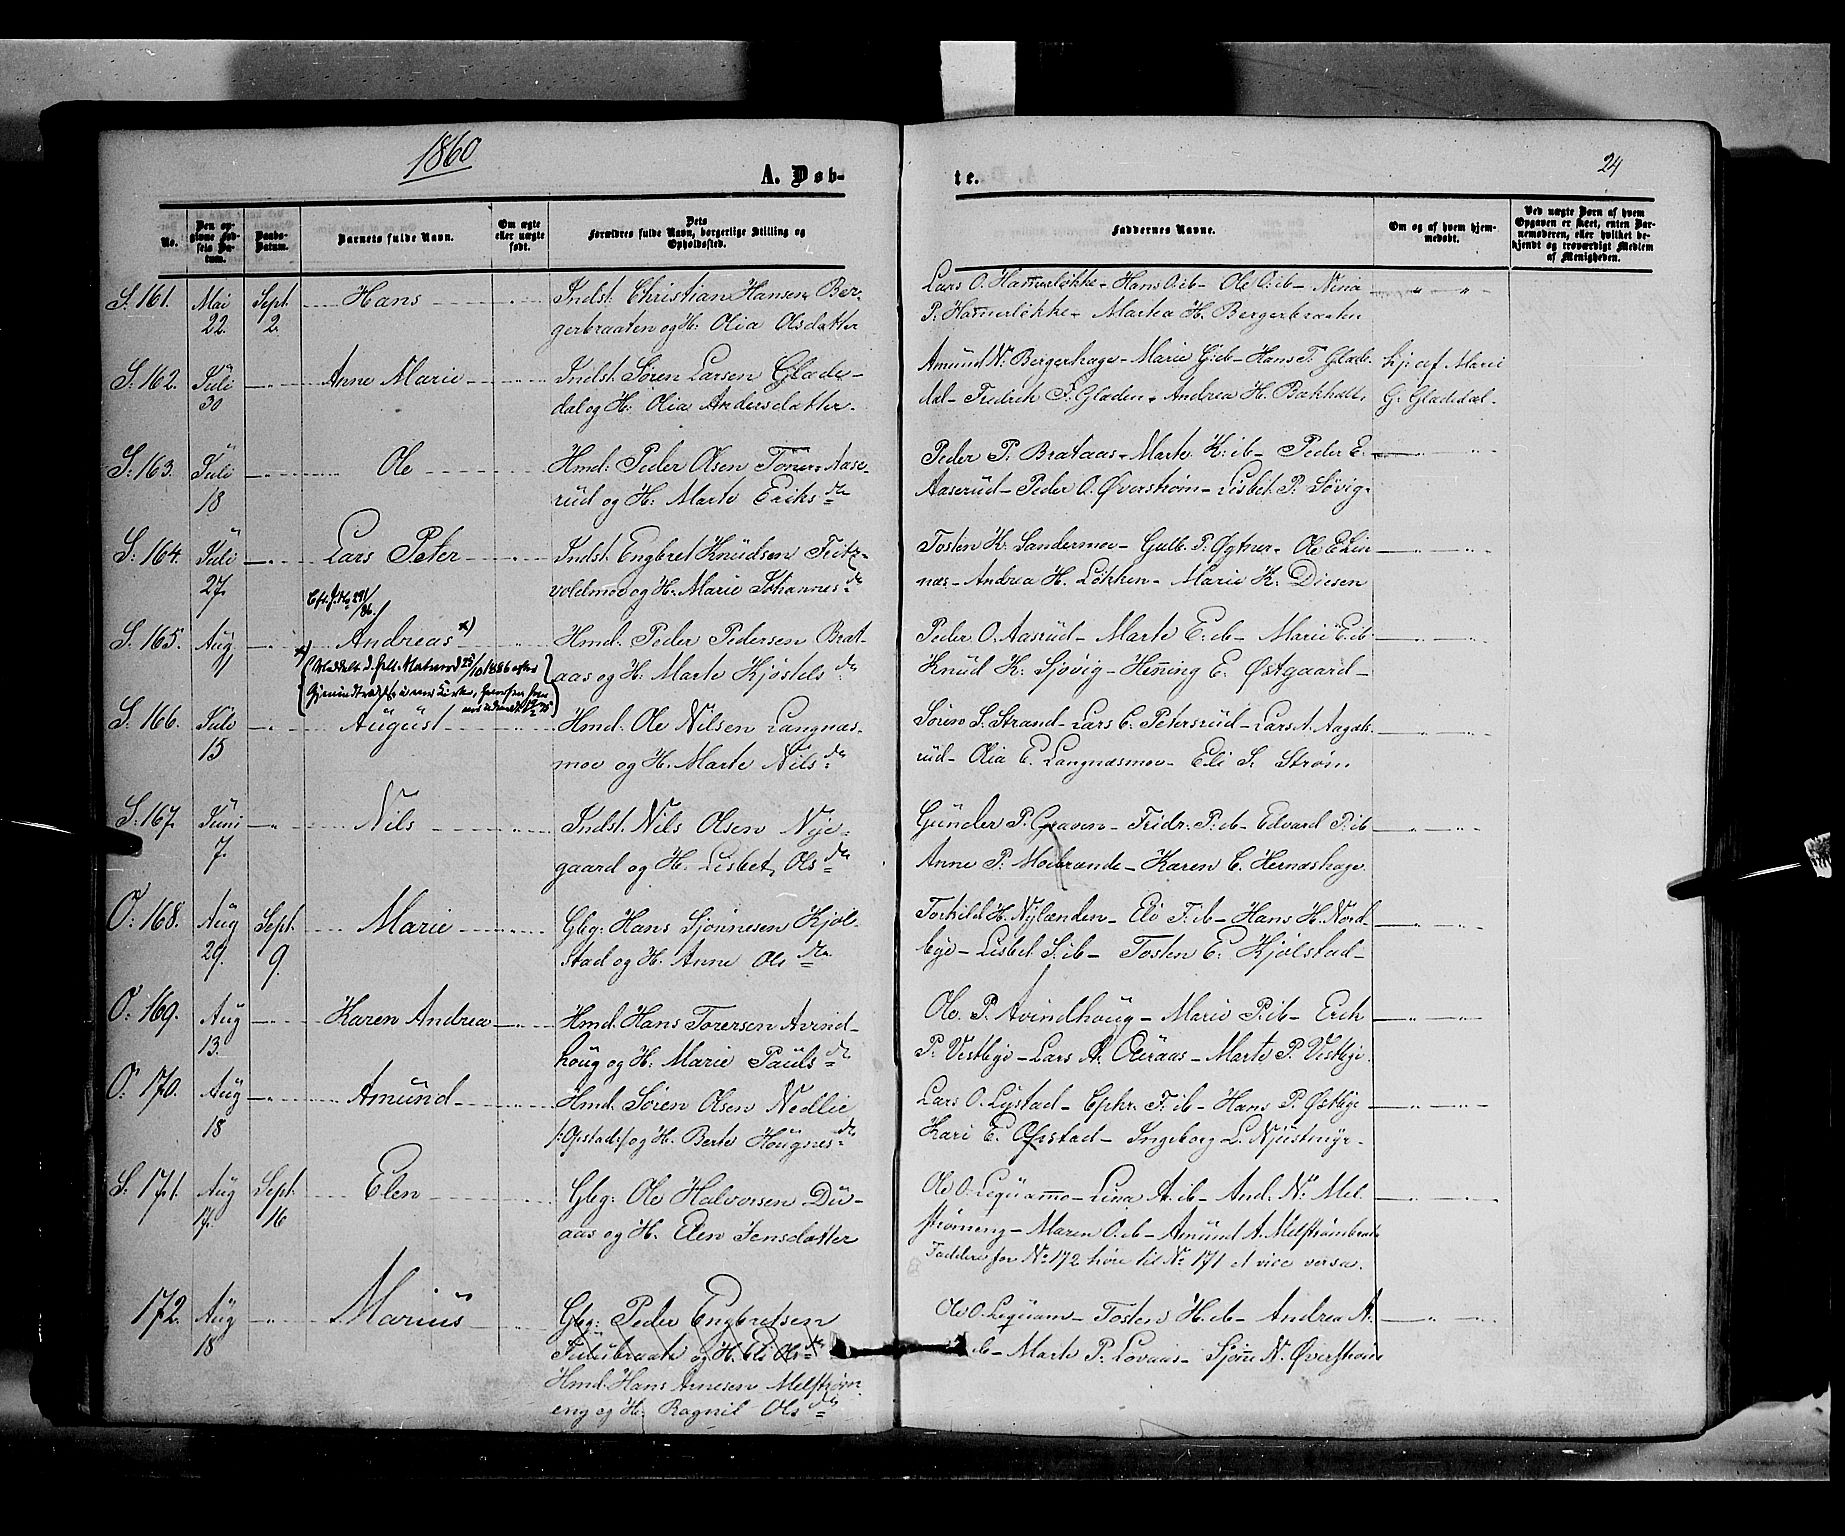 1860
A. Døb-
te.
24
No.
Den opgivne Fødsels Datum.
Daabs-Datum.
Barnets fulde Navn.
Om ægte eller uægte født.
Dets Forældres fulde Navn, borgerlige Stilling og Opholdssted.
Faddernes Navne.
Om og af hvem hjemmedøbt.
Ved uægte Børn af hvem Opgaven er skeet, enten Barnemoderen, eller hvilket bekjendt og troværdigt Medlem af Menigheden.
S. 161. Mai 22. Sept. 2. Hans
Indst. Christian Hansen Ber-
gerbraaten og H: Olia Olsdatter
Lars O. Hammerløkke - Hans O. ib - Ole O. ib - Nina
P. Hammerløkke - Martea H. Bergerbraaten
S. 162. Juli 30 Anne Marie
Indst. Søren Larsen Glade-
dal og H: Olia Andersdatter.
Amund N. Bergerhage - Marie G. ib - Hans F. Glade-
dal - Fredrik F. Gladen - Andrea H. Bakhalt.
hj: af Marie
G. Gladedal.
S. 163. Juli 18 Ole
Hmd: Peder Olsen Aase-
rud og H: Marte Eriks da
Peder P. Brataas - Marte K. ib - Peder E.
Aaserud - Peder O. Øverstrøm - Lisbet P. Søvig
S: 164. Juli 27. Lars Peter
Indst. Engbret Knudsen Feitz-
voldmoe og H: Marie Johannes da
Tosten K. Sandermoe - Gulb. P. Øgtner - Ole E. Lin-
næs - Andrea H. Løkken - Marie K. Diesen
S. 165. Aug 1 Andreas x)
Hmd: Peder Pedersen Brat-
aas og H: Marte Kjøstels da
Peder O. Aasrud - Marte E. ib - Marie E. ib
Knud K. Sjøvig - Henning E. Østgaard -
S. 166. Juli 15 August
Hmd: Ole Nilsen Langnæs-
moe og H. Marte Nils da
Søren S. Strand - Lars C. Petersrud - Lars A. Aagals-
rud - Olia E. Langnæsmoe - Eli S. Strøm
S. 167. Juni 7. Nils
Indst. Nils Olsen Nye-
gaard og H. Lisbet Ols da
Gunder P. Graven - Fridr. P. ib - Edvard P. ib
Anne P. Moebrande - Karen C. Hernæshage.
O: 168. Aug 29. Sept. 9. Marie
Gbg: Hans Sjønnesen Kjøl-
stad og H. Anne Ols da
Torkild H. Nylænden - Eli T. ib - Hans H. Nord-
bye - Lisbet S. ib - Tosten E. Kjølstad -
O: 169. Aug 13. Karen Andrea
Hmd. Hans Torersen Avind-
houg og H: Marie Pauls da
Ole P. Avindhoug - Marie P. ib - Erik
P. Vestbye - Lars A. Oleraas - Marte P. Vestbye.
O: 170. Aug 18 Amund
Hmd. Søren Olsen Nedlie
/:Opstad:/ og H. Berte Hougnes da
Lars O. Lystad - Ephr. F. ib - Hans P. Østbye
Kari E. Opstad - Ingeborg L. Njustmyr -
S. 171. Aug 17. Sept. 16 Elen
Gbg: Ole Halvorsen Du-
aas og H. Elen Jensdatter
Ole O. Lequamo - Lina A. ib - And. N. Mel-
strømeng - Maren O. ib - Amund A. Melstrømbraat
Faddere for No 172 høre til No 171 et vice versa.
172. Aug 18 Marius
Gbg: Peder Engbretsen
Julubraate og H. Eli Ols da
Hmd. Hans Arnesen Melstrøm-
eng og H: Ragnil Ols da
Ole O. Lequam - Tosten H. ib - Andrea A.
ib - Marte P. Lovaas - Sjønne N. Øverstrøm